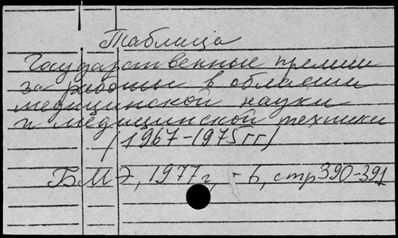 Таблица
Государственные премии
за работы в области
медицинской науки
и медицинской техники
(1967-1975гг)
БМЭ, 1977г, - 6, стр 390-391